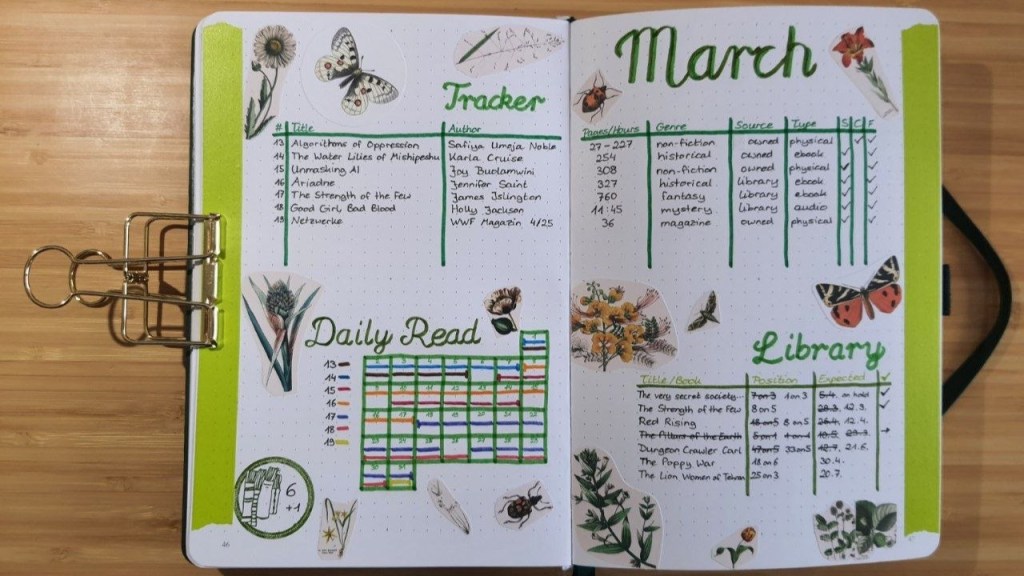 March
Tracker
# Title Author Pages/Hours Genre Source Type S C F
13 Algorithms of Oppression Safiya Umoja Noble 27-227 non-fiction owned physical ✓ ✓
14 The Water Lilies of Mishipeshu Karla Cruise 254 historical owned ebook ✓ ✓
15 Unmasking AI Joy Buolamwini 308 non-fiction owned physical ✓ ✓
16 Ariadne Jennifer Saint 327 historical library ebook ✓ ✓
17 The Strength of the Few James Islington 760 fantasy library ebook ✓ ✓
18 Good Girl, Bad Blood Holly Jackson 11:45 mystery library audio ✓ ✓
19 Netzwerke WWF Magazin 4/25 36 magazine owned physical ✓ ✓
Daily Read
13
14
15
16
17
18
19
6
+1
46
Library
Title/Book Position Expected ✓
The very secret society... 7 on 3 1 on 3 on hold ✓
The Strength of the Few 8 on 5 28.3. 12.3. ✓
Red Rising 18 on 5 8 on 5 12.4.
The Altars of the Earth →
Dungeon Crawler Carl 47 on 5 33 on 5 21.6.
The Poppy War 18 on 6 30.4.
The Lion Women of Tehran 25 on 3 20.7.